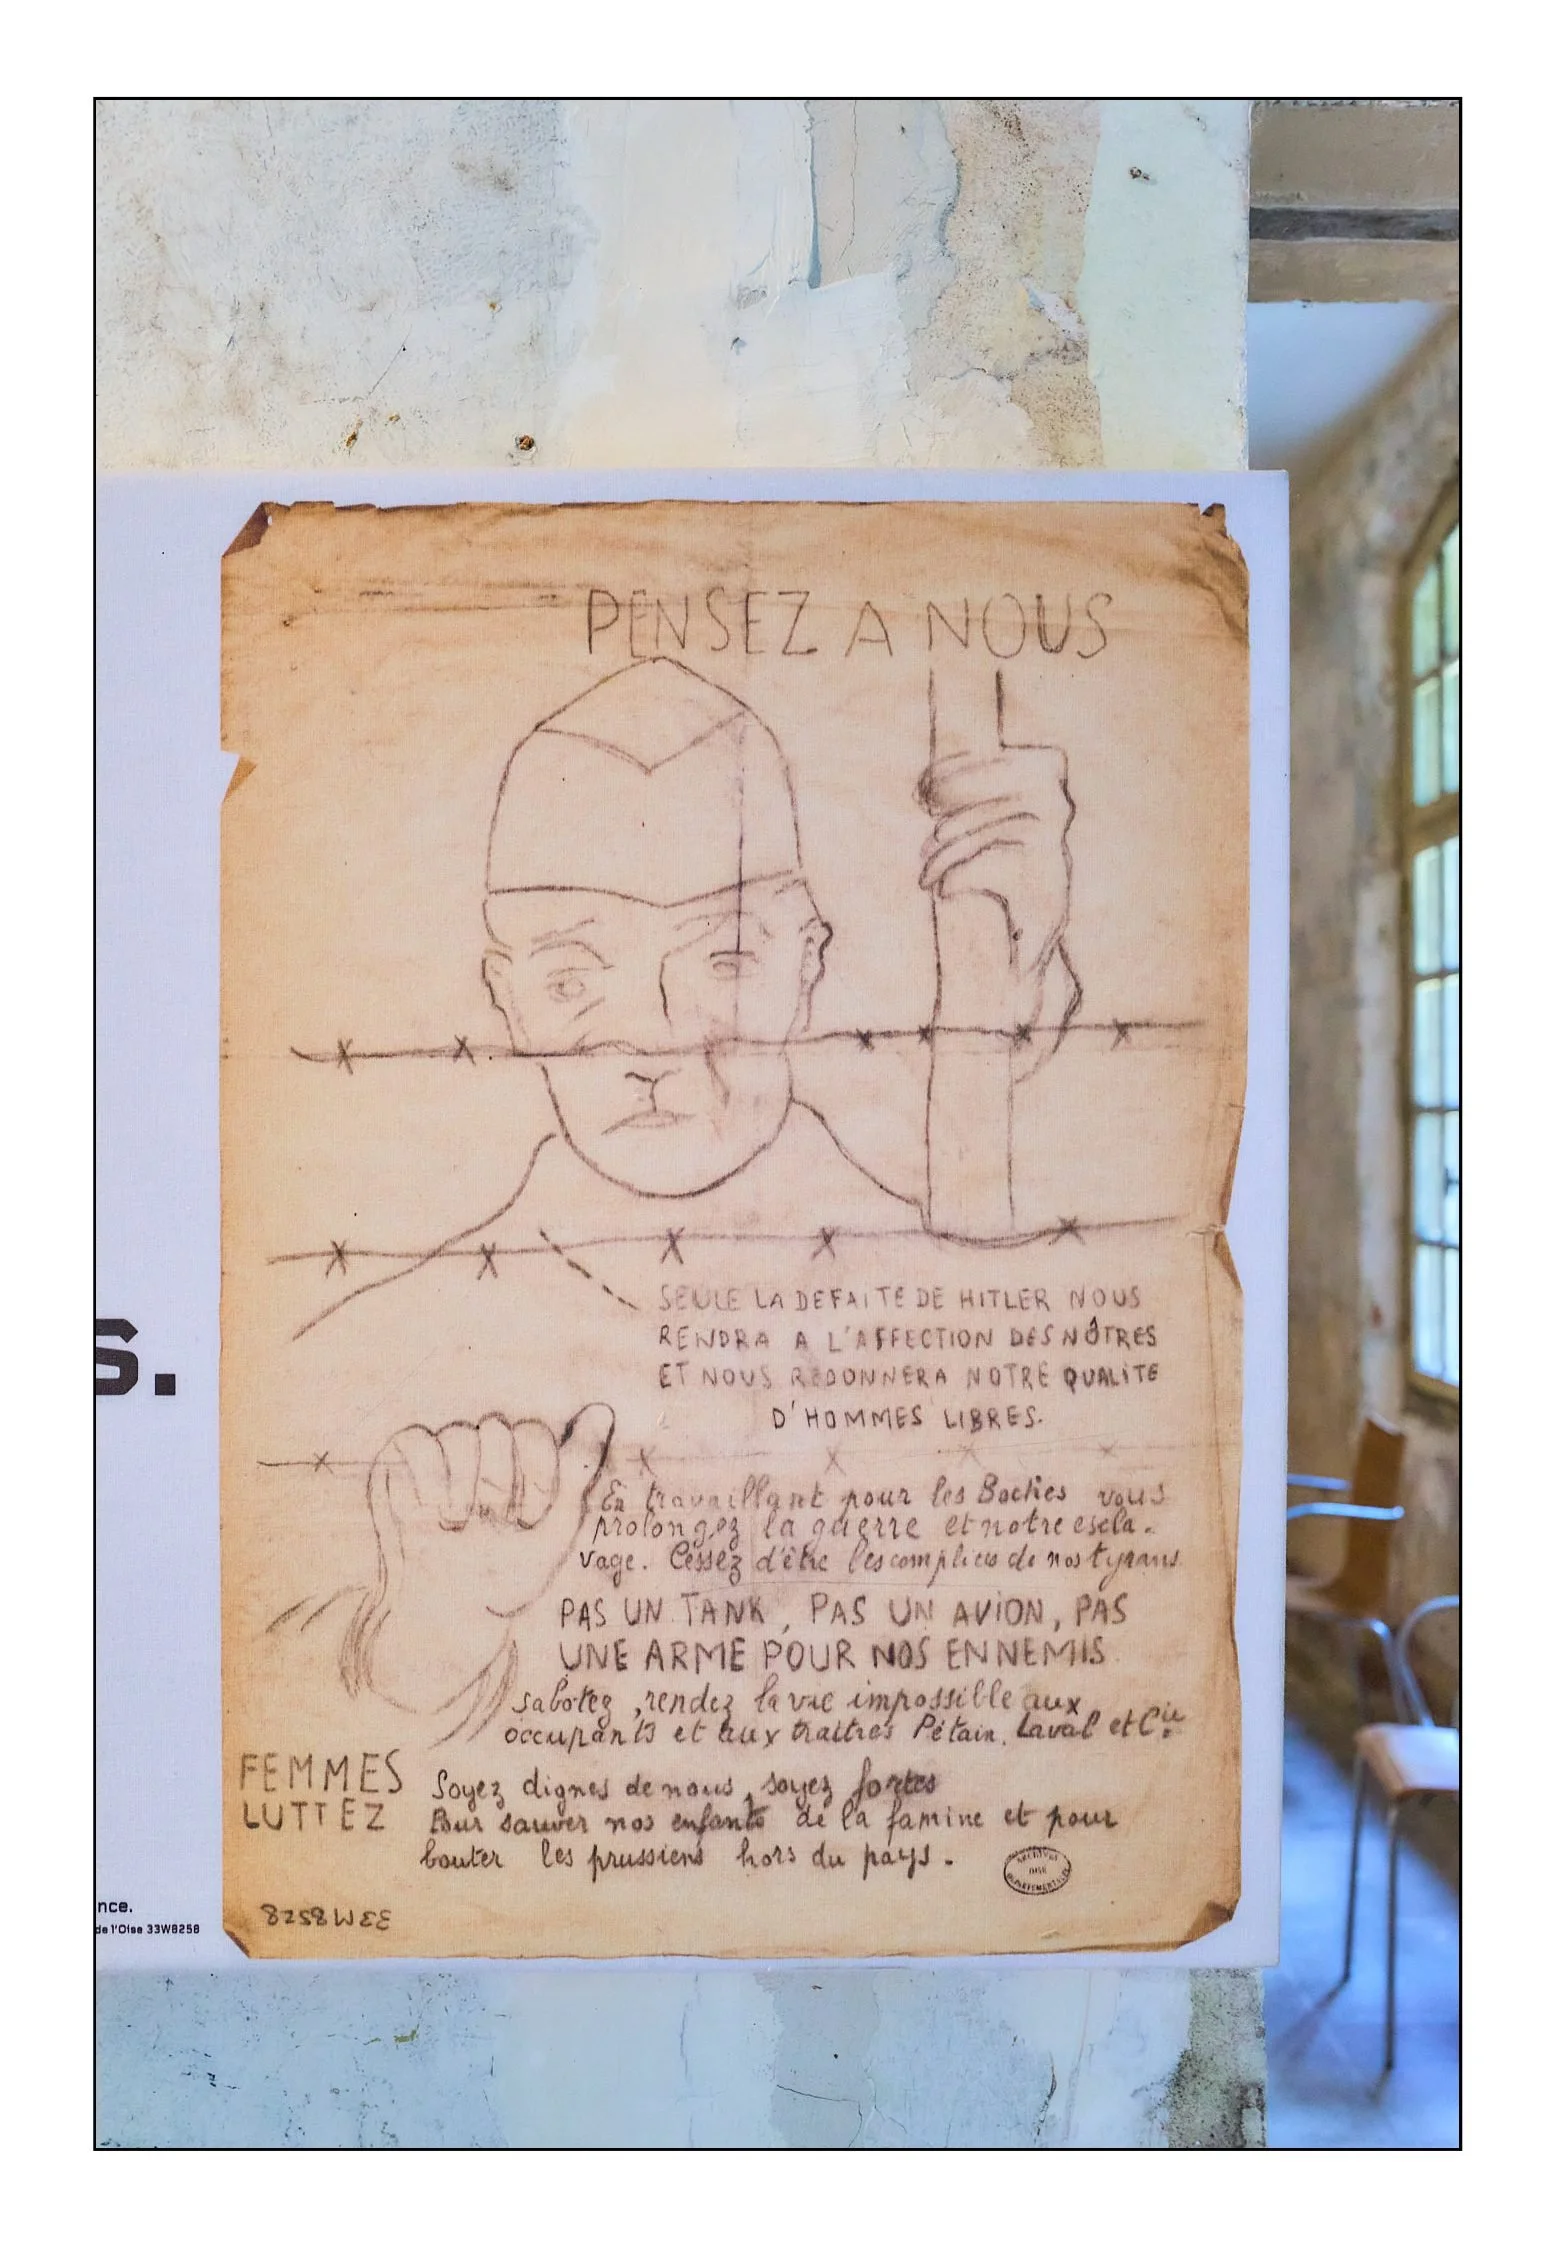 PENSEZ A NOUS
SEULE LA DEFAITE DE HITLER NOUS
RENDRA A L'AFFECTION DES NÔTRES
ET NOUS REDONNERA NOTRE QUALITE
D'HOMMES LIBRES.
En travaillant pour les Boches vous
prolongez la guerre et notre escla-
vage. Cessez d'être les complices de nos tyrans
PAS UN TANK, PAS UN AVION, PAS
UNE ARME POUR NOS ENNEMIS
Sabotez, rendez la vie impossible aux
occupants et aux traitres Pétain, Laval et Cie.
FEMMES
LUTTEZ
Soyez dignes de nous, soyez fortes
Pour sauver nos enfants de la famine et pour
bouter les prussiens hors du pays.
ARCHIVES
OISE
DEPARTEMENTALES
33W8258
s.
nce.
de l'Oise 33W8258